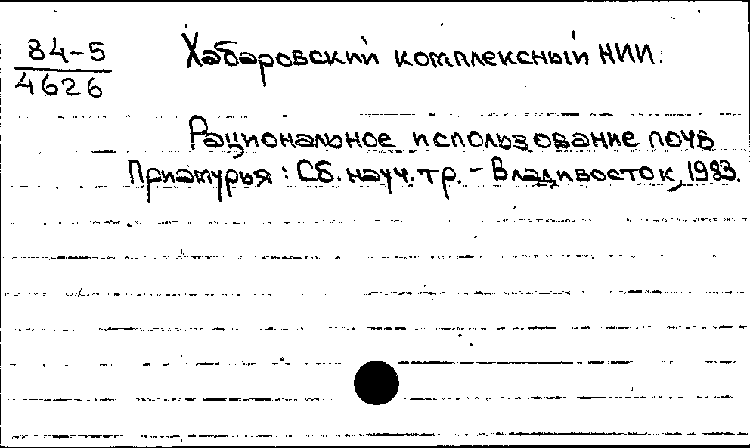 84-5
4626
Хабаровский комплексный НИИ.
Рациональное использование почв
Приамурья : Сб. науч. тр. - Владивосток, 1983.